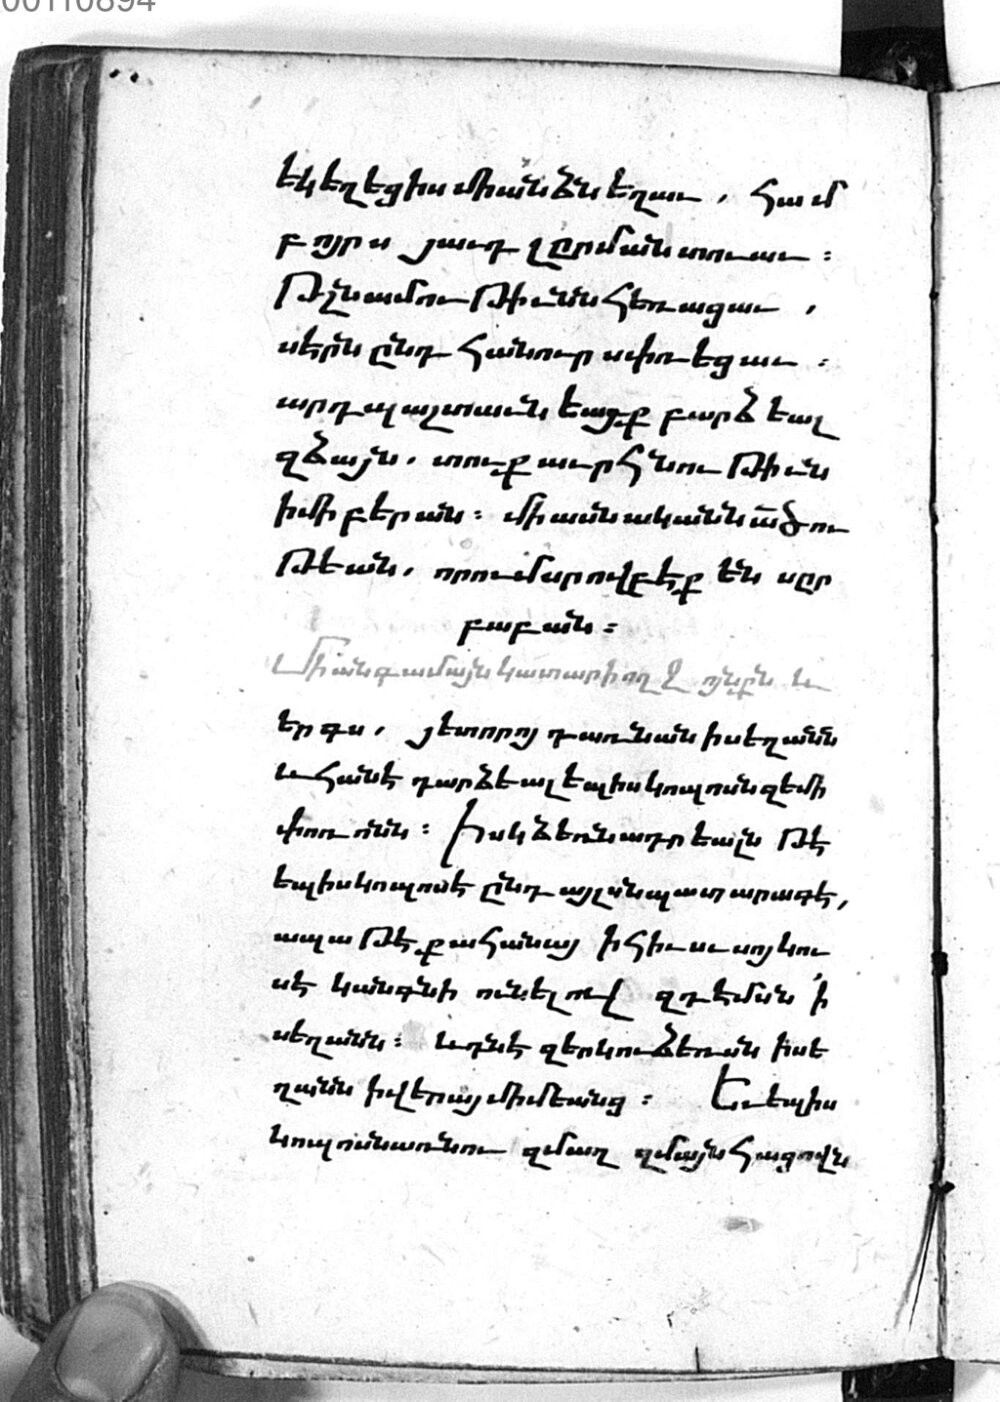 00110894
եկեղեցիս մի անձն եղաւ, համ
բոյրս յաւդ լըրման տուաւ ։
Թշնամութիւնն հեռացաւ,
սէրն ընդ հանուր սփռեցաւ ։
արդ պաշտաւնեայք բարձեալ
զձայն, տուք աւրհնութիւն
ի մի բերան ։ միասնական ած՟ու
թեան, որում սրովբէք են սըր
բաբան ։
Միանգամայն կատարի ողջոյնքն և
երգս, յետոյ դառնան ի սեղանն
և հանէ դարձեալ եպիսկոպոսն զեմի
փոռոնն ։ Իսկ ձեռնադրեալն թէ
եպիսկոպոս է ընդ այլսն պատարագէ,
ապա թէ քահանայ ի հիւսւսոյ կու
սէ կանգնի ունելով զդէմսն ՚ի
սեղանն ։ և դնէ զերկու ձեռսն ի սե
ղանն ի վերայ միմեանց ։ Եւ եպիս
կոպոսն առնու զմաղզմայն հացովն